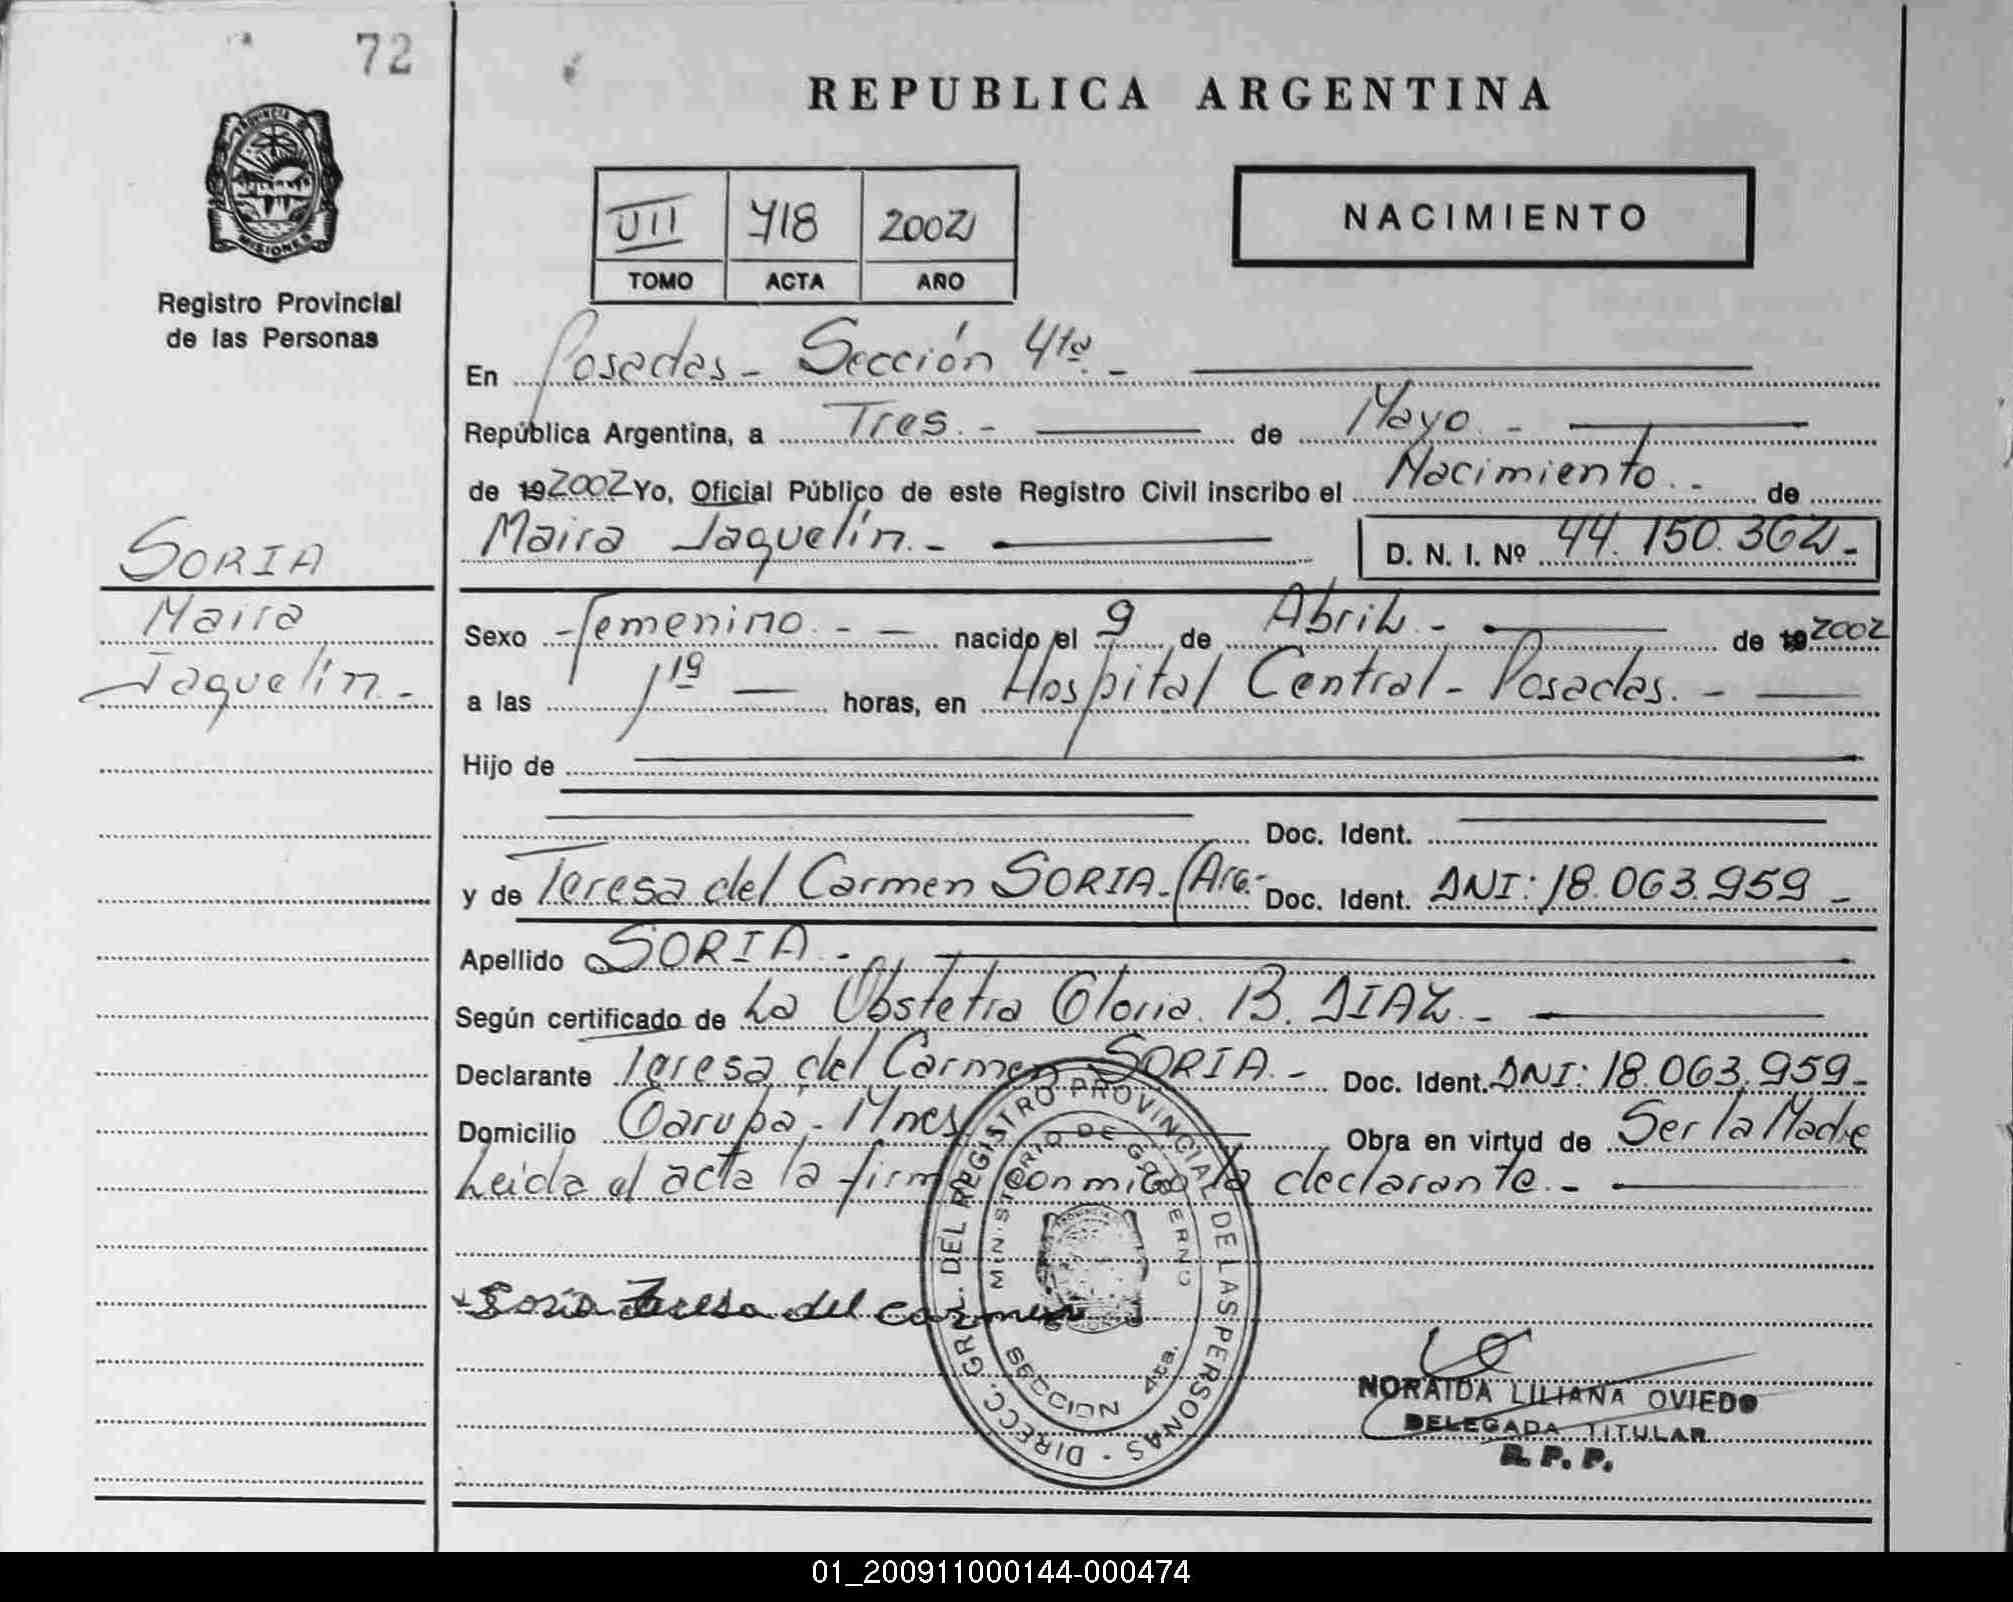 72
REPUBLICA ARGENTINA
PROVINCIA DE
MISIONES
Registro Provincial
de las Personas
VII 718 2002
TOMO ACTA AÑO
NACIMIENTO
En Posadas - Sección 4ta. -
República Argentina, a Tres. - de Mayo. -
de 192002 Yo, Oficial Público de este Registro Civil inscribo el Nacimiento. - de
Maira Jaquelín. - D. N. I. Nº 44.150.362.-
SORIA
Maira
Jaquelín. -
Sexo - femenino. - - nacido el 9 de Abril. - de 192002
a las 1,19 horas, en Hospital Central - Posadas. -
Hijo de
Doc. Ident.
y de Teresa del Carmen SORIA. (Arg.- Doc. Ident. DNI: 18.063.959 -
Apellido SORIA. -
Según certificado de La Obstetra Gloria B. DIAZ. -
Declarante Teresa del Carmen SORIA. - Doc. Ident. DNI: 18.063.959-
Domicilio Garupá - Mnes Obra en virtud de Ser la Madre
Leida el acta la firma conmigo la declarante. -
Soria Teresa del carmen
DIRECC. GRL. DEL REGISTRO PROVINCIAL DE LAS PERSONAS -
MINISTERIO DE GOBIERNO
SECCION 4ta.
NORAIDA LILIANA OVIEDO
DELEGADA TITULAR
R. P. P.
01_200911000144-000474